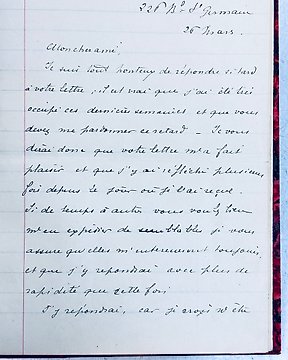 226 Bd St Germain
26 Mars.
Mon cher ami,
Je suis tout honteux de répondre si tard
à votre lettre, il est vrai que j'ai été très
occupé ces dernières semaines et que vous
devez me pardonner ce retard - Je vous
dirai donc que votre lettre m'a fait
plaisir et que j'y ai réfléchi plusieurs
fois depuis le jour où je l'ai reçue.
Si de temps à autre vous voulez bien
m'en expédier de semblables je vous
assure qu'elles m'intéresseront toujours,
et que j'y repondrai avec plus de
rapidité que cette fois
J'y repondrai, car je crois